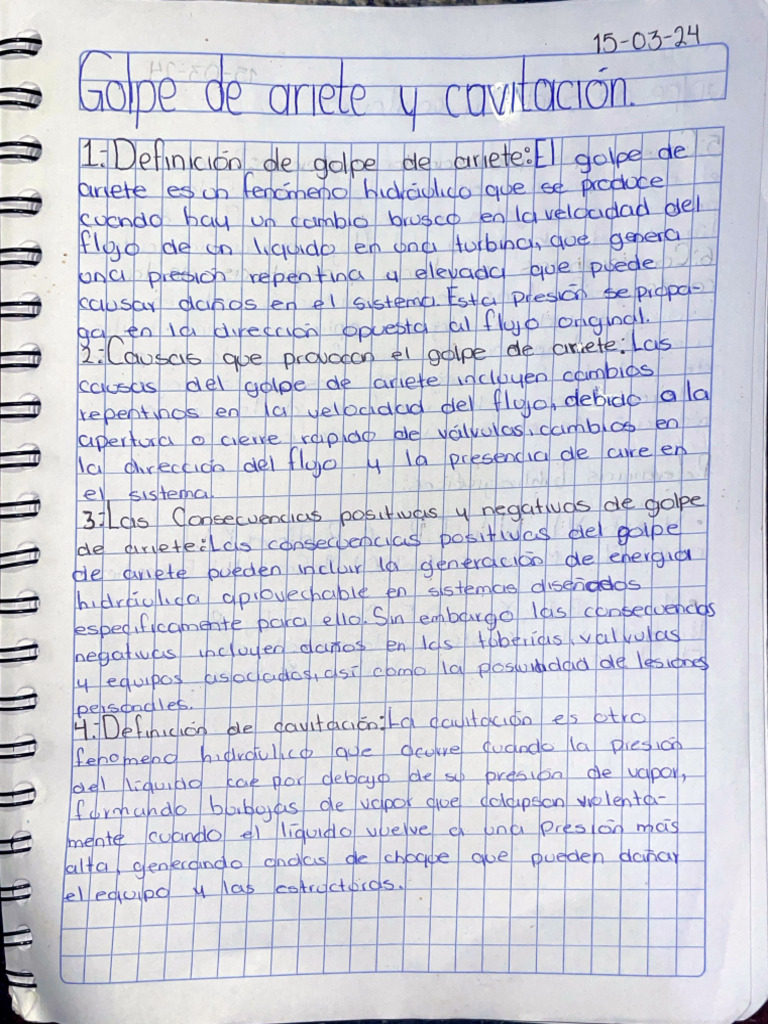 15-03-24
Golpe de ariete y cavitación.
1:Definición de golpe de ariete:El golpe de
ariete es un fenómeno hidráulico que se produce
cuando hay un cambio brusco en la velocidad del
flujo de un líquido en una turbina, que genera
una presión repentina y elevada que puede
causar daños en el sistema. Esta presión se propa-
ga en la dirección opuesta al flujo original.
2:Causas que provocan el golpe de ariete:Las
causas del golpe de ariete incluyen cambios
repentinos en la velocidad del flujo, debido a la
apertura o cierre rápido de válvulas, cambios en
la dirección del flujo y la presencia de aire en
el sistema.
3:Las Consecuencias positivas y negativas de golpe
de ariete:Las consecuencias positivas del golpe
de ariete pueden incluir la generación de energia
hidráulica aprovechable en sistemas diseñados
especificamente para ello. Sin embargo las consecuencias
negativas incluyen daños en las tuberias, valvulas
y equipos asociados, así como la de lesiones
personales.
4:Definición de cavitación:La cavitación es otro
fenomeno hidráulico que ocurre cuando la presión
del líquido cae por debajo de su presión de vapor,
formando burbujas de vapor que colapsan violenta-
mente cuando el líquido vuelve a una presión más
alta, generando ondas de choque que pueden dañar
el equipo y las estructuras.